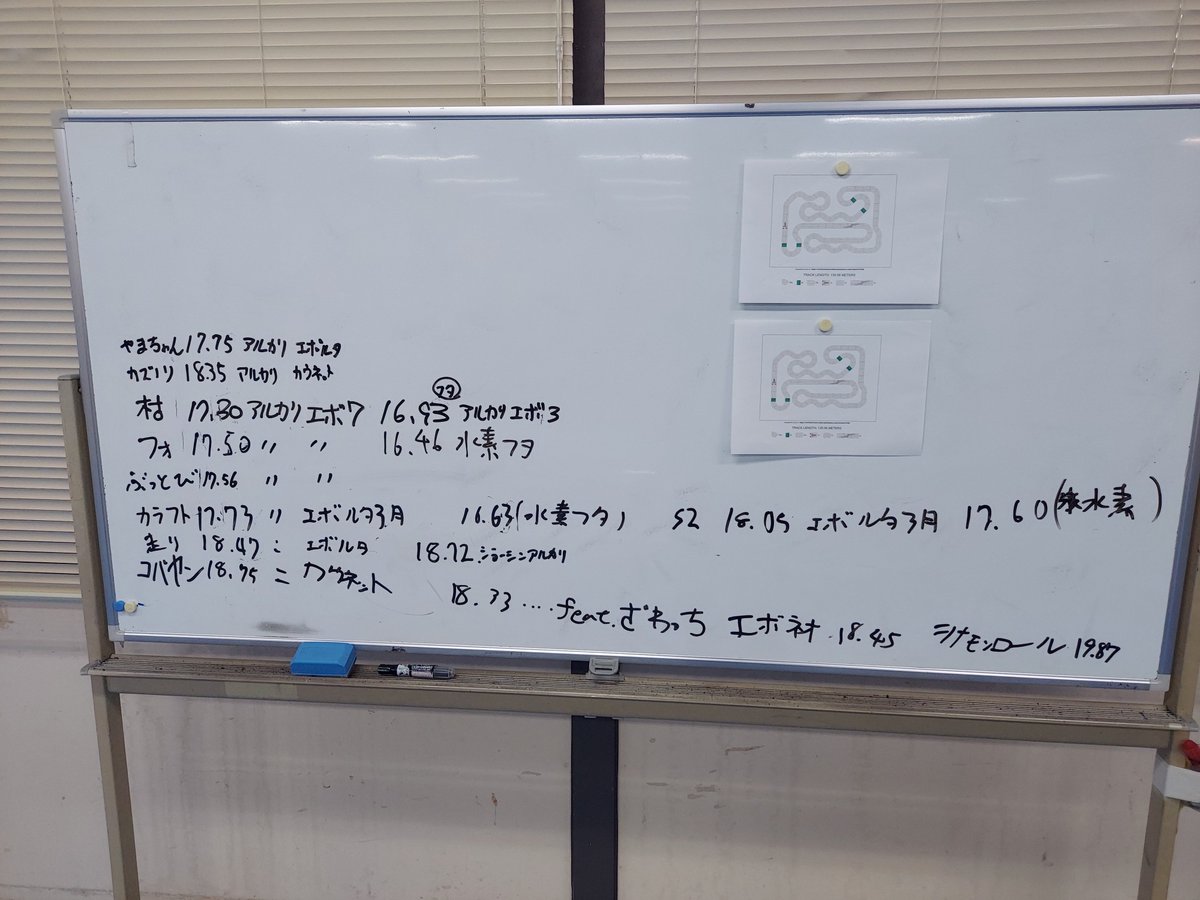 TRACK LENGTH
TRACK LENGTH
やまちゃん 17.75 アルカリ エボルタ
カズノリ 18.35 アルカリ カウネット
村 17.30 アルカリ エボ7 16.93 フタ アルカリ エボ3
フォ 17.50 〃 〃 16.46 水素フタ
ぶっとび 17.56 〃 〃
カラフト 17.73 〃 エボルタ3月 16.63(水素フタ) S2 18.05 エボルタ3月 17.60(水素)
走り 18.47 〃 エボルタ 18.72 ジョーシンアルカリ
コバヤン 18.75 〃 カウネット
18.33 .... feat.ざわっち エボネオ 18.45 シナモンロール 19.87